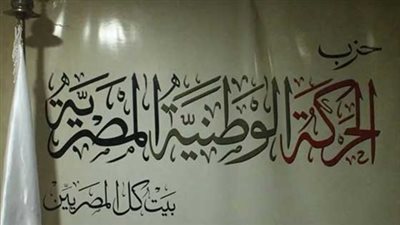 حزب
الحركة الوطنية المصرية
بيت كل المصريين